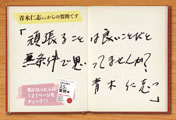 青木仁志さんからの質問です
「頑張ることは良いことだと
無条件で思ってませんか?」
青木仁志
気になった人は
121ページを
チェック!!